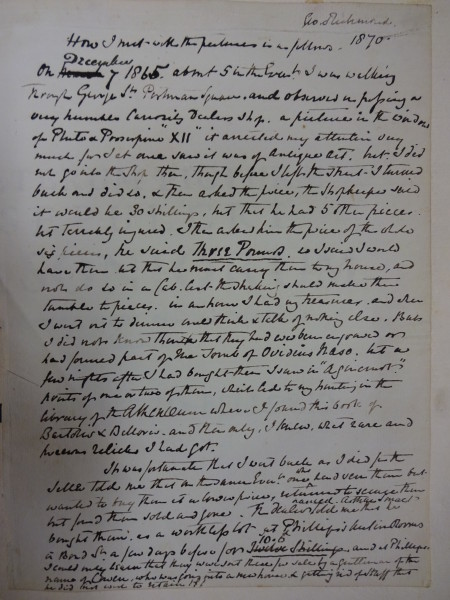 Geo. Richmond.
How I met with the pictures is as follows. 1870.
December
On 7 1865. about 5 in the Eveng I was walking
through George St. Portman Square, and observed in passing a
very humble Curiosity Dealers Shop. a picture in the window
of Pluto & Proserpine "XII" it arrested my attention very
much for I at once saw it was of Antique Art. but I did
not go into the shop then, though before I left the Street I turned
back and did so, & then asked the price, the Shopkeeper said
it would be 30 shillings, but that he had 5 other pieces
but terribly injured. I then asked him the price of the whole
six pieces, he said Three Pounds. so I said I would
have them but that he must carry them to my house, and
not do so in a Cab. lest the shaking should make them
tumble to pieces. in an hour I had my treasures. and when
I went out to dinner could think & talk of nothing else. But
I did not know that they had ever been engraved or
had formed part of the Tomb of Ovidius Naso. but a
few nights after I had bought them I saw in "Agincourt"
prints of one or two of them, which led to my hunting in the
library of the Athenæum where I found this book of
Bartoli & Bellori. and then only, I knew, what rare and
precious relicks I had got.
It was fortunate that I went back as I did for the
Seller told me that on the same Eveng one who had seen them but
wanted to buy them at a lower price, returned to secure them
but found them sold and gone. The Dealer told me that he
bought them as a worthless lot at Phillips's Auction Rooms
in Bond St a few days before for Twelve Shillings. and at Phillips's
10.6
I could only learn that they were sent there for sale by a gentleman of the
name of who was going into a new house, & getting rid of stuff that
he did not care to retain